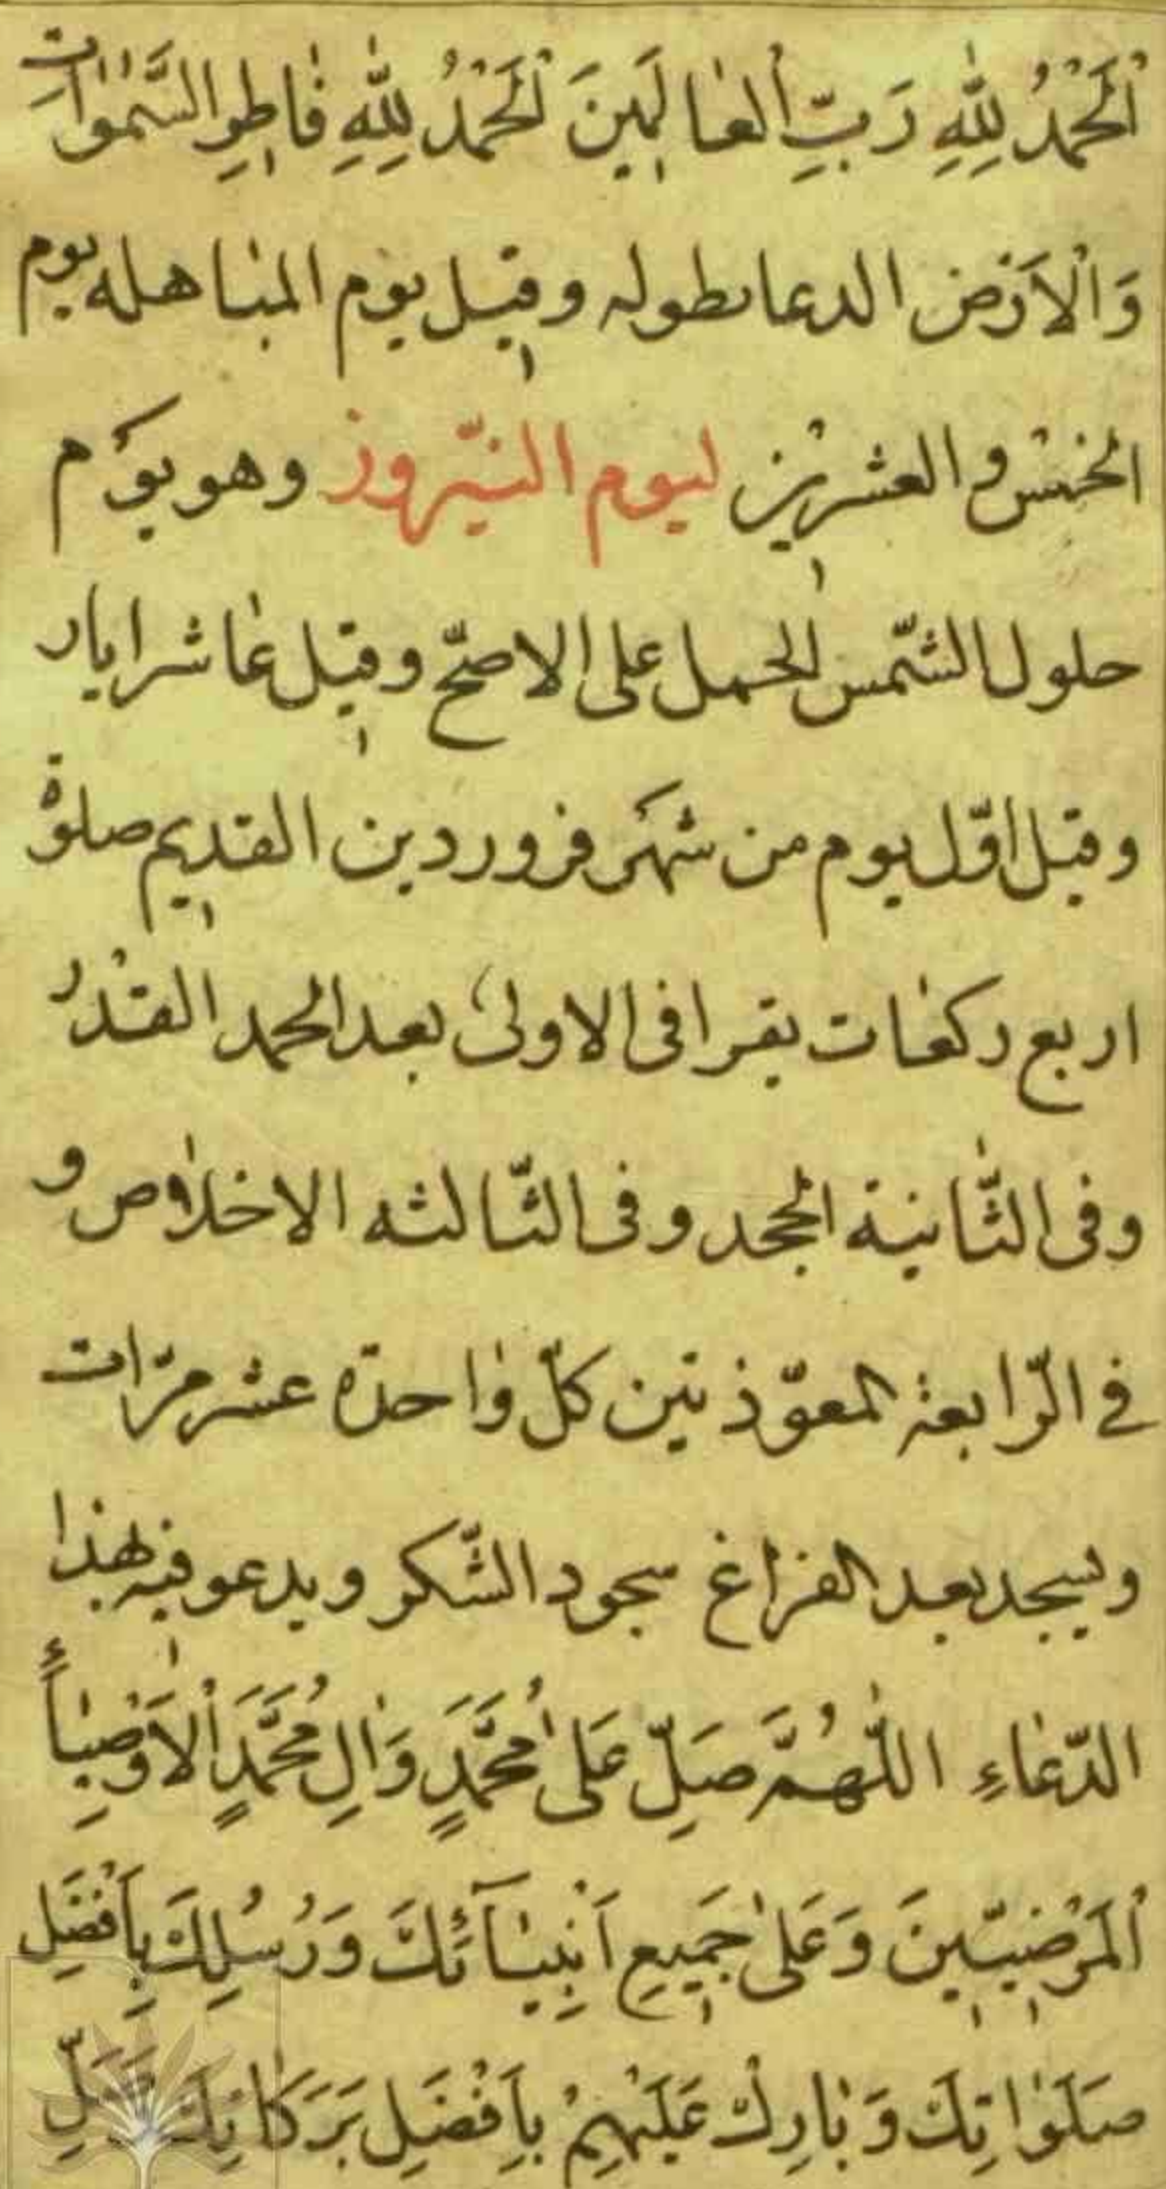 اَلْحَمْدُ لِلّٰهِ رَبِّ الْعٰالَمِينَ اَلْحَمْدُ لِلّٰهِ فٰاطِرِ السَّمٰوٰاتِ
وَالْاَرْضِ الدعا بطوله وقيل يوم المباهله يوم
الخمس والعشرين ليوم النيّروز وهو يوم
حلول الشّمس الحمل على الاصحّ وقيل عاشر ايار
وقيل اوّل يوم من شهر فروردين القديم صلوة
اربع ركعات يقرا فى الاولىٰ بعد الحمد القدر
وفى الثّانية الجحد وفى الثّالثه الاخلاص و
فى الرّابعة المعوّذتين كلّ واحدة عشر مرّات
ويسجد بعد الفراغ سجود الشّكر ويدعو فيه بهذا
الدّعاءِ اللّٰهُمَّ صَلِّ عَلىٰ مُحَمَّدٍ وَاٰلِ مُحَمَّدٍ اَلْاَوْصِيٰاءِ
اَلْمَرْضِيّينَ وَعَلىٰ جَمِيعِ اَنْبِيٰآئِكَ وَرُسُلِكَ بِاَفْضَلِ
صَلَوٰاتِكَ وَبٰارِكْ عَلَيْهِمْ بِاَفْضَلِ بَرَكٰاتِكَ وَصَلِّ